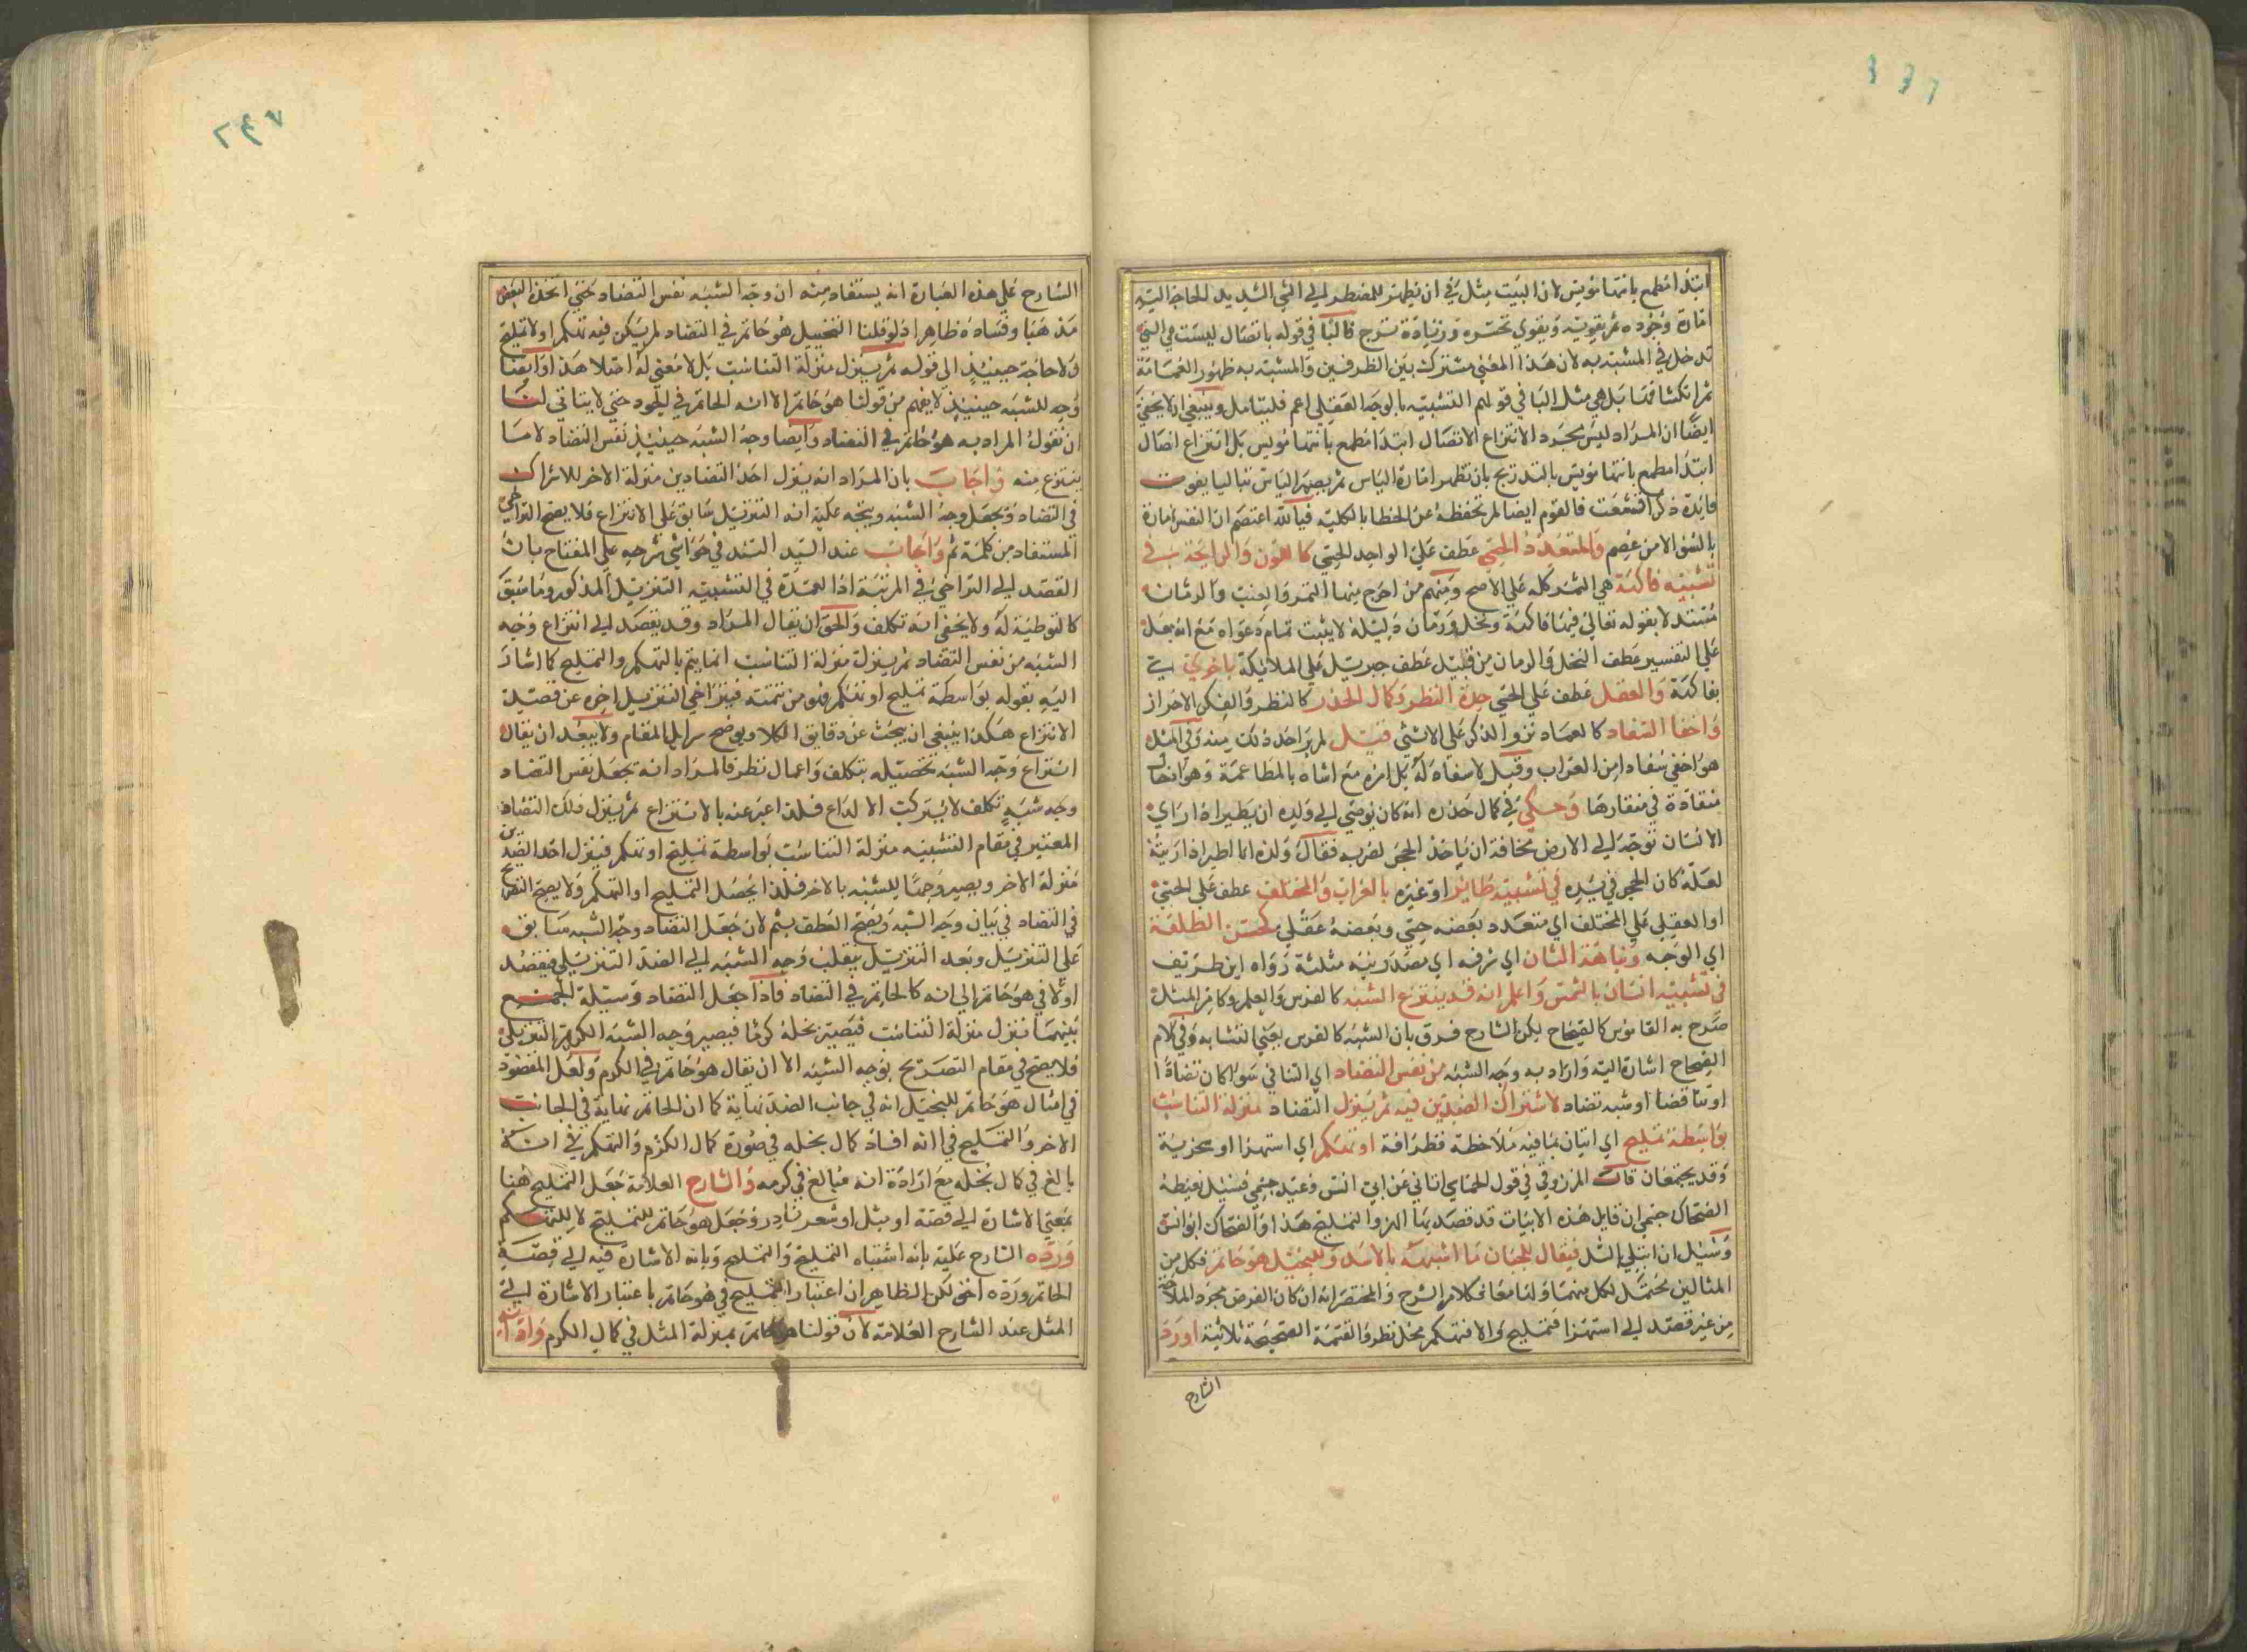 ابتدا مطمع بانتها مؤيس لان البيت مثل في ان يظهر للمضطر الي الشي الشديد الحاجة اليه
امارة وجوده ثم يفوته ويقوي تحسره وزيادة ترح فالبا في قوله باتصال ليست هي التي
تدخل في المشبه به لان هذا المعني مشترك بين الطرفين والمشبه به ظهور الغمامة
ثم انكشافها بل هي مثل البا في قولهم التشبيه بالوجه العقلي اعم فليتامل وينبغي ان لا يخفي
ايضا ان المراد ليس مجرد الانتزاع الاتصال ابتدا مطمع بانتها مؤيس بل انتزاع اتصال
ابتدا مطمع بانتها مؤيس بالتدريج بان تظهر امارة الياس ثم يصير الياس غالبا يفوت
فائدة ذكر اقشعت فالقوم ايضا لم تحفظه عن الخطا بالكلية فبالله اعتصم ان النفس امارة
بالسوء الا من عصم والمتعدد الحسي عطف علي الواحد الحسي كاللون والرايحة في
تشبيه فاكهة هي الثمر كله علي الاصح ومنهم من اخرج منها التمر والعنب والرمان
مستدلا بقوله تعالي فيها فاكهة ونخل ورمان ودليله لا يثبت تمام دعواه مع انه يصل
علي التفسير عطف النخل والرمان من قبيل عطف جبريل علي الملايكة باخري اي
بفاكهة والعقلي عطف علي الحسي حدة النظر وكمال الحذر كالنظر والفكر الاحتراز
واخفا السفاد كالعماد نزو الذكر علي الانثي قيل لم ير احد ذلك منه وفي المثل
هو اخفي سفادا من الغراب وقيل لا سفاد له بل امره مع انثاه بالمطاعمة وهو ادخال
منقاره في منقارها وحكي في كمال حذره انه كان يوصي الي ولده ان يطير اذا راي
الانسان توجه الي الارض مخافة ان ياخذ الحجر لضربه فقال ولده انا اطير اذا رايته
لعله كان الحجر في يده في تشبيه طاير اوغيره بالغراب والمختلف عطف علي الحسي
او العقلي علي المختلف اي متعدد بعضه حسي وبعضه عقلي كحسن الطلعة
اي الوجه ونباهة الشان اي شرفه اي مصدر نبه مثلثة رواه ابن طريف
في تشبيه انسان بالشمس واعلم انه قد ينتزع الشبه كالفرس والعلم وكامير المثل
صرح به القاموس كالصحاح لكن الشارح فرق بان الشبه كالفرس بمعني التشابه وفي كلام
الصحاح اشارة اليه واراد به وجه الشبه من نفس التضاد اي التنافي سوا كان تضادا
او تناقضا او شبه تضاد لاشتراك الضدين فيه ثم ينزل التضاد منزلة التناسب
بواسطة تمليح اي اتيان بما فيه ملاحظة فظرافة او تهكم اي استهزا او سخرية
وقد يجتمعان قال المرزوقي في قول الحماسي اتاني عن ابي انس وعيد جسمي فسئل تغيظه
الضحاك جسمي ان قايل هذه الابيات قد قصد بها الهزؤ التمليح هذا والضحاك ابو انس
وسئيل ان ابتلي بالسل فيقال للجبان ما اشبهه بالاسد وللبخيل هو حاتم فكل من
المثالين محتمل لكل منهما ولنا معاني كلام الشرح والمختصر انه ان كان الغرض مجرد الملاحة
من غير قصد الي استهزا فتمليح والا فتهكم محل نظر والقسمة الصحيحة ثلاثية اورد
الشارح
الشارح علي هذه العبارة انه يستفاد منه ان وجه الشبه نفس التضاد حتي اتخذه البعض
مذهبا وفساده ظاهر اذ لو قلنا التخييل هو حاتم في التضاد لم يكن فيه تهكم او لا تمليح
ولا حاجة حينيذ الي قوله ثم ينزل منزلة التناسب بل لا معني له اصلا هذا وايضا
وجه للشبه حينيذ لا يفهم من قولنا هو حاتم الا انه الحاتم في الجود حتي لا يتاتي لنا
ان نقول المراد به هو حاتم في التضاد وايضا وجه الشبه حينيذ نفس التضاد لا ما
ينتزع منه واجاب بان المراد انه ينزل احد التضادين منزلة الاخر للاشراك
في التضاد ويجعل وجه الشبه ويتجه عليه انه التنزيل سابق علي الانتزاع فلا يصح التراخي
المستفاد من كلمة ثم واجاب عنه السيد السند في حواشي شرحه علي المفتاح بان
القصد الي التراخي في المرتبة اذ العمدة في التشبيه التنزيل المذكور وما سبق
كالتوطية له ولا يخفي انه تكلف والحق ان يقال المراد وقد يقصد الي انتزاع وجه
الشبه من نفس التضاد ثم ينزل منزلة التناسب انما يتم بالتهكم والتمليح كما اشار
اليه بقوله بواسطة تمليح او تهكم فهو من تتمته فيتراخي التنزيل اخره عن قصد
الانتزاع هكذا ينبغي ان يبحث عن دقايق الكلام ويوضح مرام المقام ولا يبعد ان يقال
انتزاع وجه الشبه تحصيله بتكلف واعمال نظر فالمراد انه تجعل نفس التضاد
وجه شبه بتكلف لا يتركب الا لداع فلذا عبر عنه بالانتزاع ثم ينزل ذلك التضاد
المعتبر في مقام التشبيه منزلة التناسب بواسطة تمليح او تهكم فينزل احد الضدين
منزلة الاخر ويصير وجها للشبه بالاخر فلذا يحصل التمليح او التهكم ولا يصح التصريح
في التضاد في بيان وجه الشبه ويصح العطف بثم لان جعل التضاد وجه الشبه سابق
علي التنزيل وبعد التنزيل ينقلب وجه الشبه الي الضد التنزيلي فيقصد
اولا في هو حاتم الي انه كالحاتم في التضاد فاذا جعل التضاد وسيلة الجمع
بينهما فنزل منزلة التناسب فيصير بخله كرما فيصير وجه الشبه الكرم التنزيلي
فلا يصح في مقام التصريح بوجه الشبه الا ان يقال هو حاتم في الكرم ولعل المقصود
في امثال هو حاتم للبخيل انه في جانب الضد نهاية كما ان الحاتم نهاية في الجانب
الاخر والتمليح في انه افاد كمال بخله في صورة كمال الكرم والتهكم في انه
بالغ في كمال بخله مع ارادة انه مبالغ في كرمه والشارح العلامة جعل التمليح هنا
بمعني الاشارة الي قصة او مثل او شعر نادر وجعل هو حاتم للتمليح لا للتهكم
ورده الشارح عليه بانه اشتباه التمليح والتلميح وبانه الاشارة فيه الي قصة
الحاتم ورده اخي لكن الظاهر ان اعتبار التمليح في هو حاتم باعتبار الاشارة الي
المثل عند الشارح العلامة لان قولنا هو حاتم بمنزلة المثل في كمال الكرم واداته